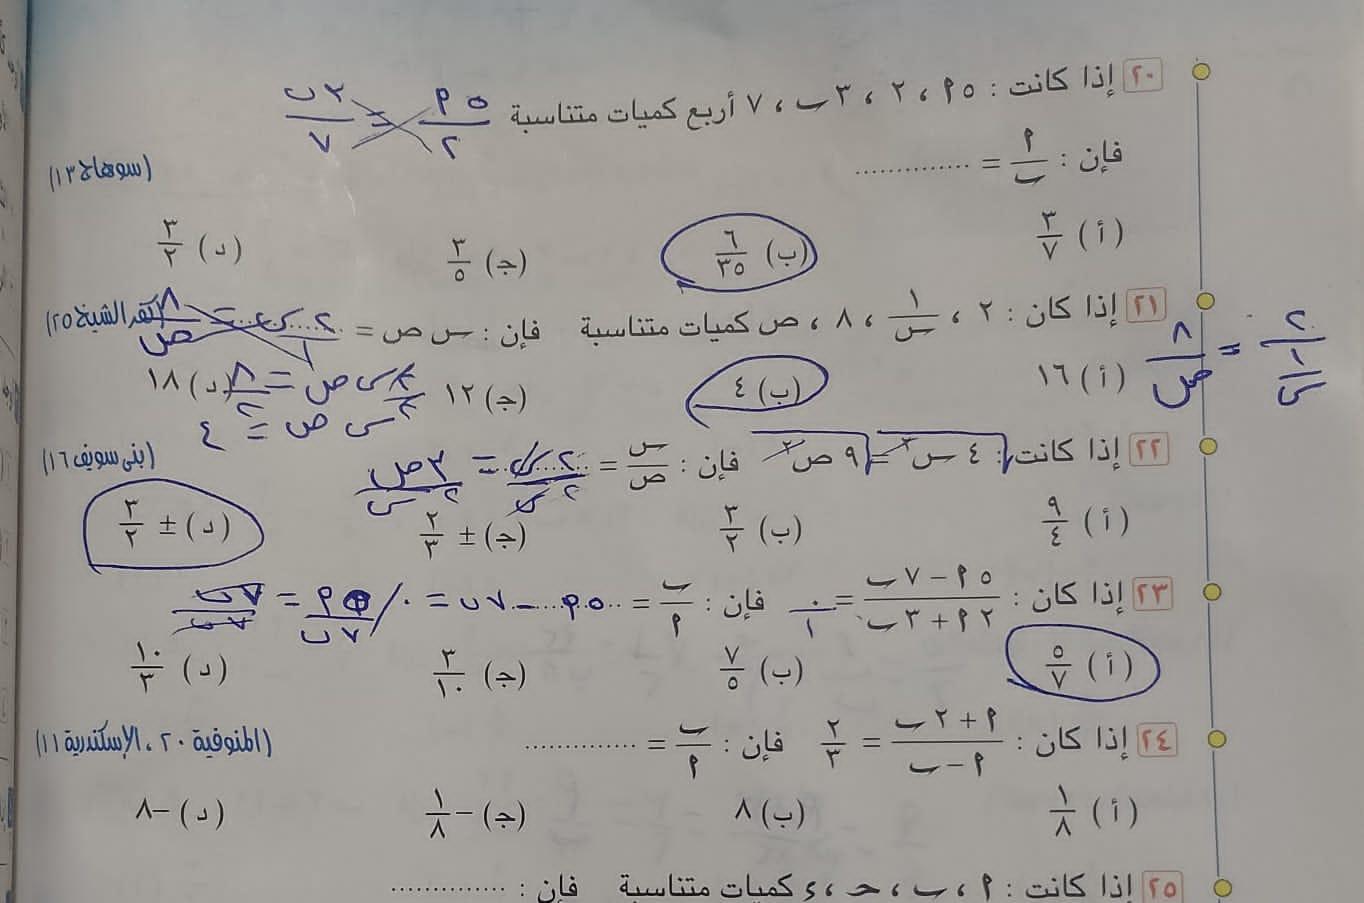 ٢٠ إذا كانت : ٥ ٩ ، ٢ ، ٣ ب ، ٧ أربع كميات متناسبة ٥ ٩ / ٢ = ٣ ب / ٧
فإن : ٩ / ب = .............
(سوهاج ١٣)
(أ) ٣/٧ (ب) ٦/٣٥ (ج) ٣/٥ (د) ٣/٢
٢١ إذا كان : ٢ ، ١/س ، ٨ ، ص كميات متناسبة فإن : س ص = ٢ س / ١ = ٨ / ص (كفر الشيخ ٢٥)
٢ / ١/س = ٨ / ص
(أ) ١٦ (ب) ٤ (ج) ١٢ (د) ١٨
٢ س ص / ٢ = ٨ / ٢
س ص = ٤
٢٢ إذا كانت : ٤ س٢ = ٩ ص٢ فإن : س / ص = (بنى سويف ١٦)
(أ) ٩/٤ (ب) ٣/٢ (ج) ± ٢/٣ (د) ± ٣/٢
٢٣ إذا كان : ٥ ٩ − ٧ ب / ٢ ٩ + ٣ ب = ٠ / ١ فإن : ب / ٩ = ٥ ٩ − ٧ ب = ٠
(أ) ٥/٧ (ب) ٧/٥ (ج) ٣/١٠ (د) ١٠/٣
٢٤ إذا كان : ٩ + ٢ ب / ٩ − ب = ٢/٣ فإن : ب / ٩ = ............. (المنوفية ٢٠ ، الإسكندرية ١١)
(أ) ١/٨ (ب) ٨ (ج) −١/٨ (د) −٨
٢٥ إذا كانت : ٩ ، ب ، ح ، ء كميات متناسبة فإن : .............